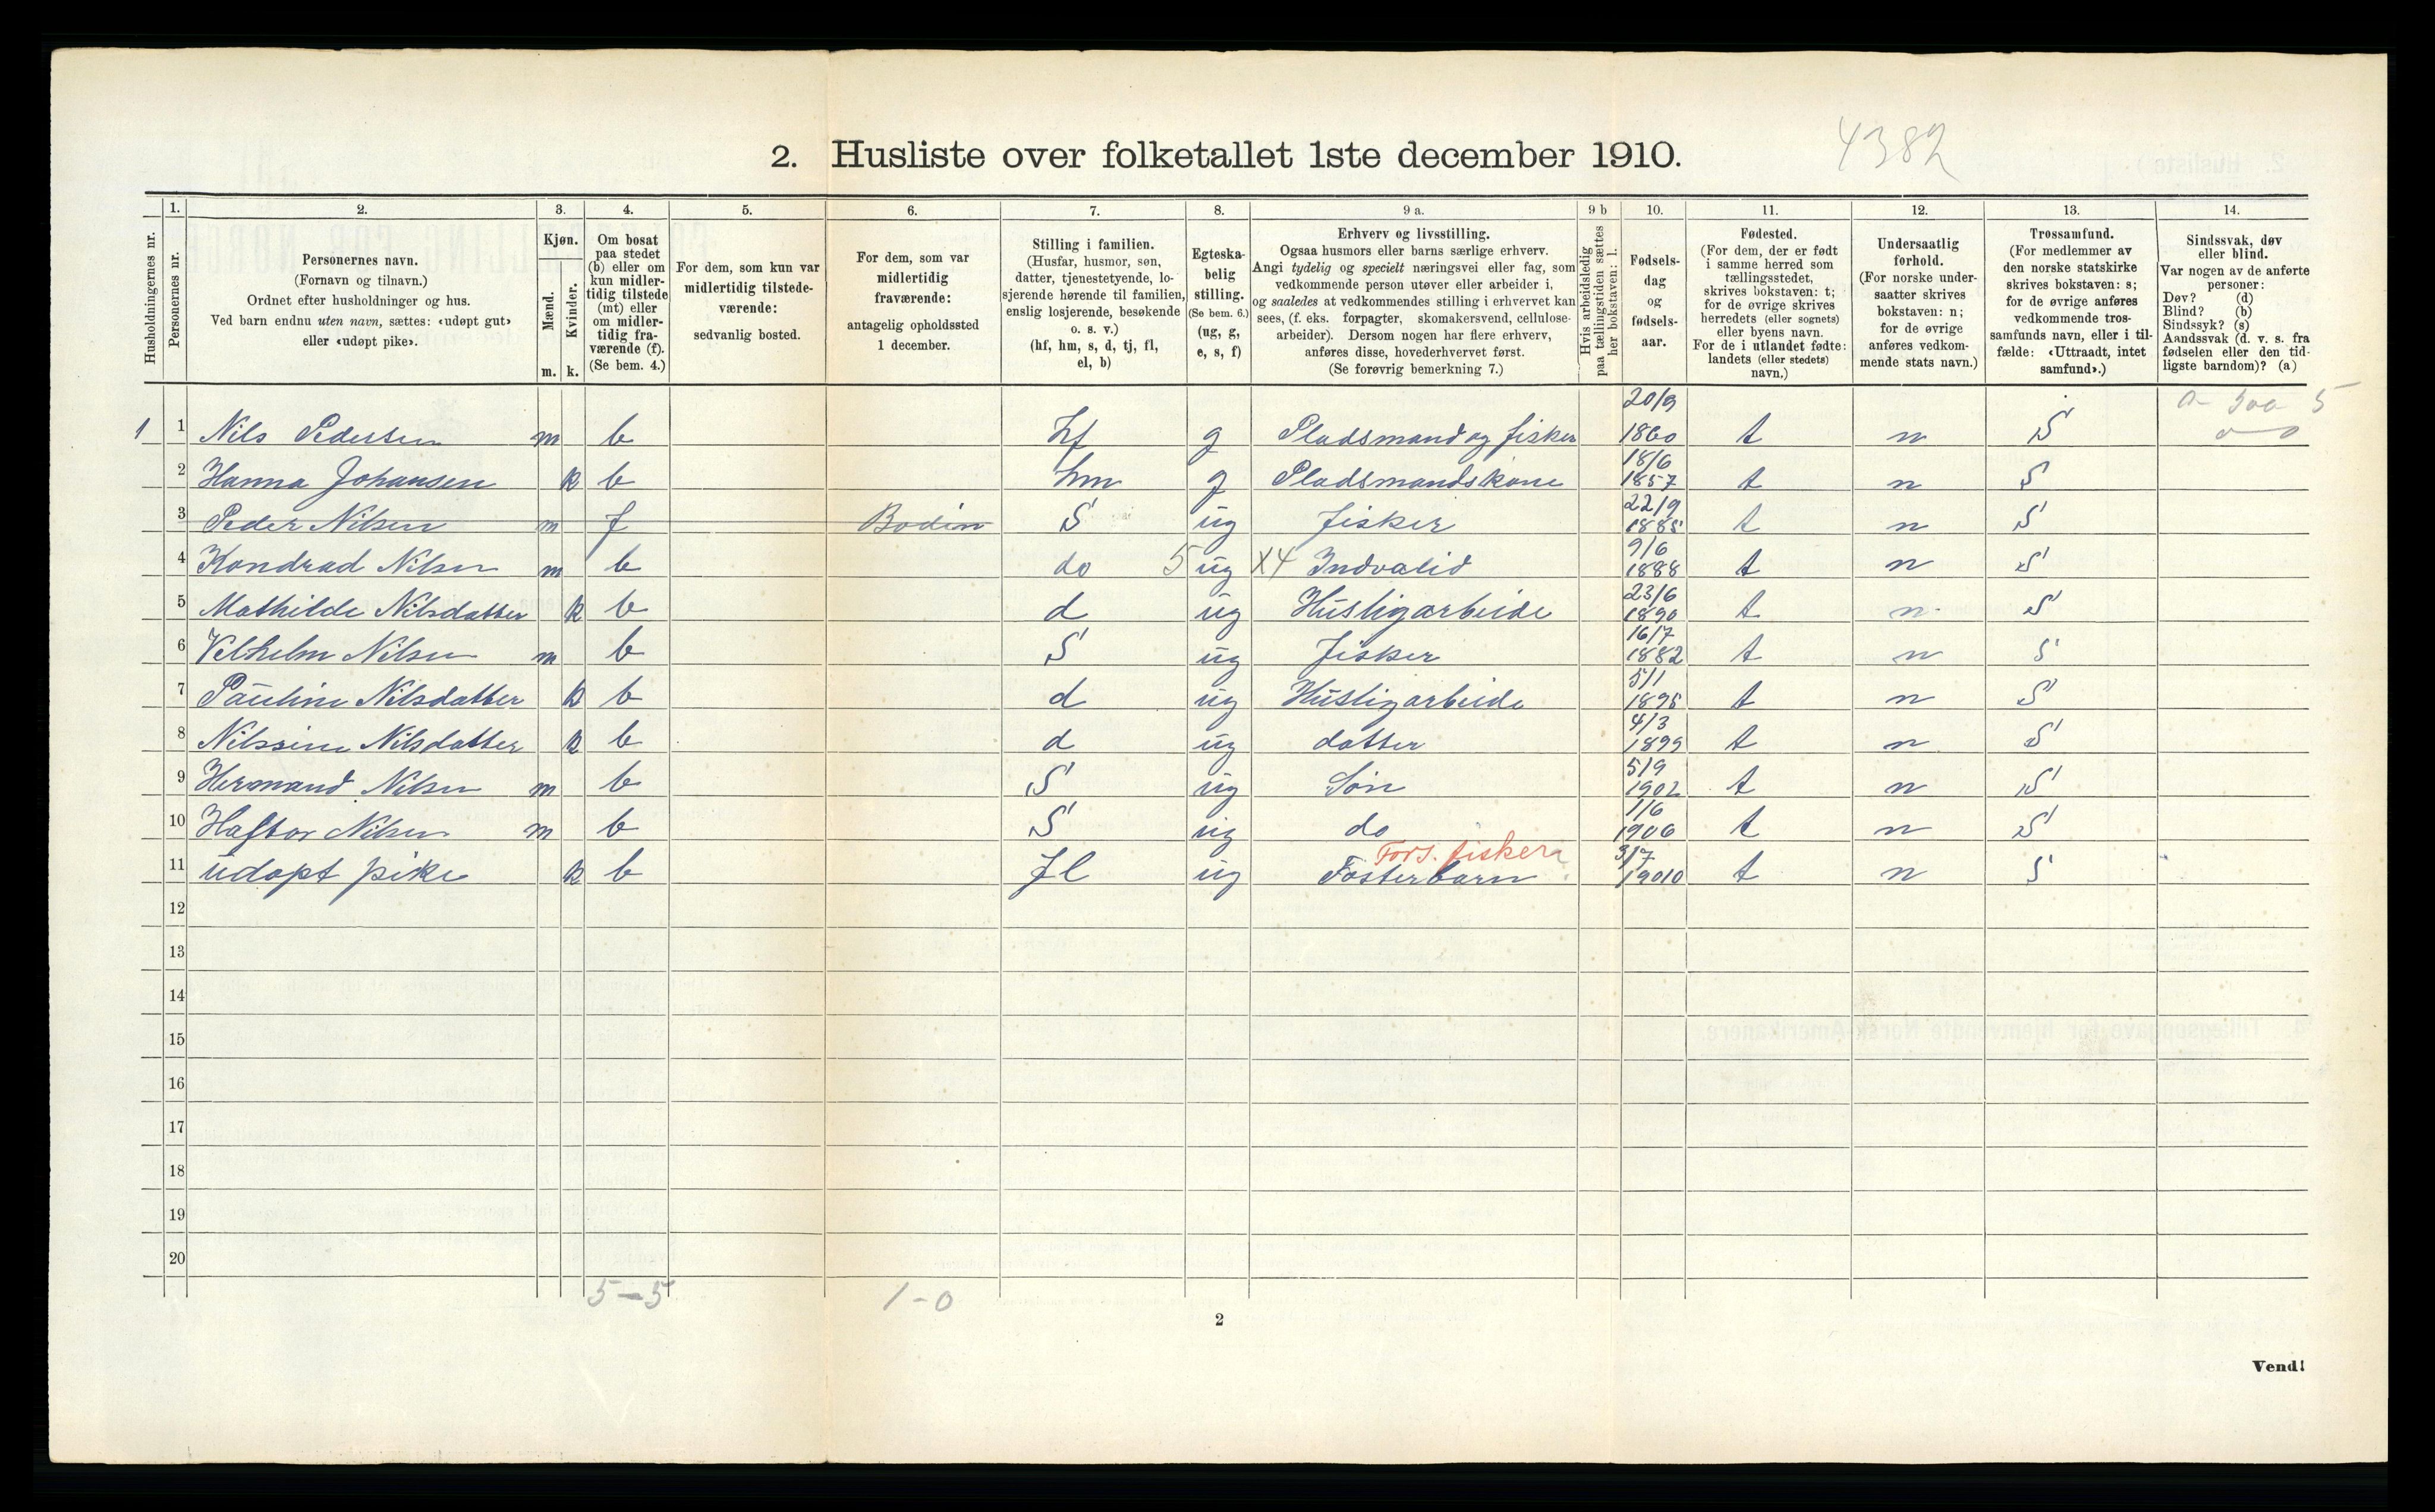 2. Husliste over folketallet 1ste december 1910.
4382
1. 2. 3. 4. 5. 6. 7. 8. 9 a. 9 b 10. 11. 12. 13. 14.
Husholdningernes nr.
Personernes nr.
Personernes navn.
(Fornavn og tilnavn.)
Ordnet efter husholdninger og hus.
Ved barn endnu uten navn, sættes: «udøpt gut»
eller «udøpt pike».
Kjøn.
Mænd.
Kvinder.
m. k.
Om bosat
paa stedet
(b) eller om
kun midler-
tidig tilstede
(mt) eller
om midler-
tidig fra-
værende (f).
(Se bem. 4.)
For dem, som kun var
midlertidig tilstede-
værende:
sedvanlig bosted.
For dem, som var
midlertidig
fraværende:
antagelig opholdssted
1 december.
Stilling i familien.
(Husfar, husmor, søn,
datter, tjenestetyende, lo-
sjerende hørende til familien,
enslig losjerende, besøkende
o. s. v.)
(hf, hm, s, d, tj, fl,
el, b)
Egteska-
belig
stilling.
(Se bem. 6.)
(ug, g,
e, s, f)
Erhverv og livsstilling.
Ogsaa husmors eller barns særlige erhverv.
Angi tydelig og specielt næringsvei eller fag, som
vedkommende person utøver eller arbeider i,
og saaledes at vedkommendes stilling i erhvervet kan
sees, (f. eks. forpagter, skomakersvend, cellulose-
arbeider). Dersom nogen har flere erhverv,
anføres disse, hovederhvervet først.
(Se forøvrig bemerkning 7.)
Hvis arbeidsledig
paa tællingstiden sættes
her bokstaven: l.
Fødsels-
dag
og
fødsels-
aar.
Fødested.
(For dem, der er født
i samme herred som
tællingsstedet,
skrives bokstaven: t;
for de øvrige skrives
herredets (eller sognets)
eller byens navn.
For de i utlandet fødte:
landets (eller stedets)
navn.)
Undersaatlig
forhold.
(For norske under-
saatter skrives
bokstaven: n;
for de øvrige
anføres vedkom-
mende stats navn.)
Trossamfund.
(For medlemmer av
den norske statskirke
skrives bokstaven: s;
for de øvrige anføres
vedkommende tros-
samfunds navn, eller i til-
fælde: «Uttraadt, intet
samfund».)
Sindssvak, døv
eller blind.
Var nogen av de anførte
personer:
Døv? (d)
Blind? (b)
Sindssyk? (s)
Aandssvak (d. v. s. fra
fødselen eller den tid-
ligste barndom)? (a)
1 1 Nils Pedersen m b hf g Pladsmand og fisker 20/9 1860 t n S
2 Hanna Johansen k b hm g Pladsmandskone 18/6 1857 t n S
3 Peder Nilsen m f Bodin S ug fisker 22/9 1885 t n S
4 Kondrad Nilsen m b do 5 ug X4 Indvalid 9/6 1888 t n S
5 Mathilde Nilsdatter k b d ug Husligarbeide 23/6 1890 t n S
6 Velhelm Nilsen m b S ug fisker 16/7 1882 t n S
7 Pauline Nilsdatter k b d ug Husligarbeide 5/1 1895 t n S
8 Nilssine Nilsdatter k b d ug datter 4/3 1899 t n S
9 Hermand Nilsen m b S ug Søn 5/9 1902 t n S
10 Haftor Nilsen m b S ug do 1/6 1906 t n S
Fors. fisker
11 udøpt pike k b fl ug Fosterbarn 3/7 19010 t n S
12
13
14
15
16
17
18
19
20
5-5 1-0
2
Vend!